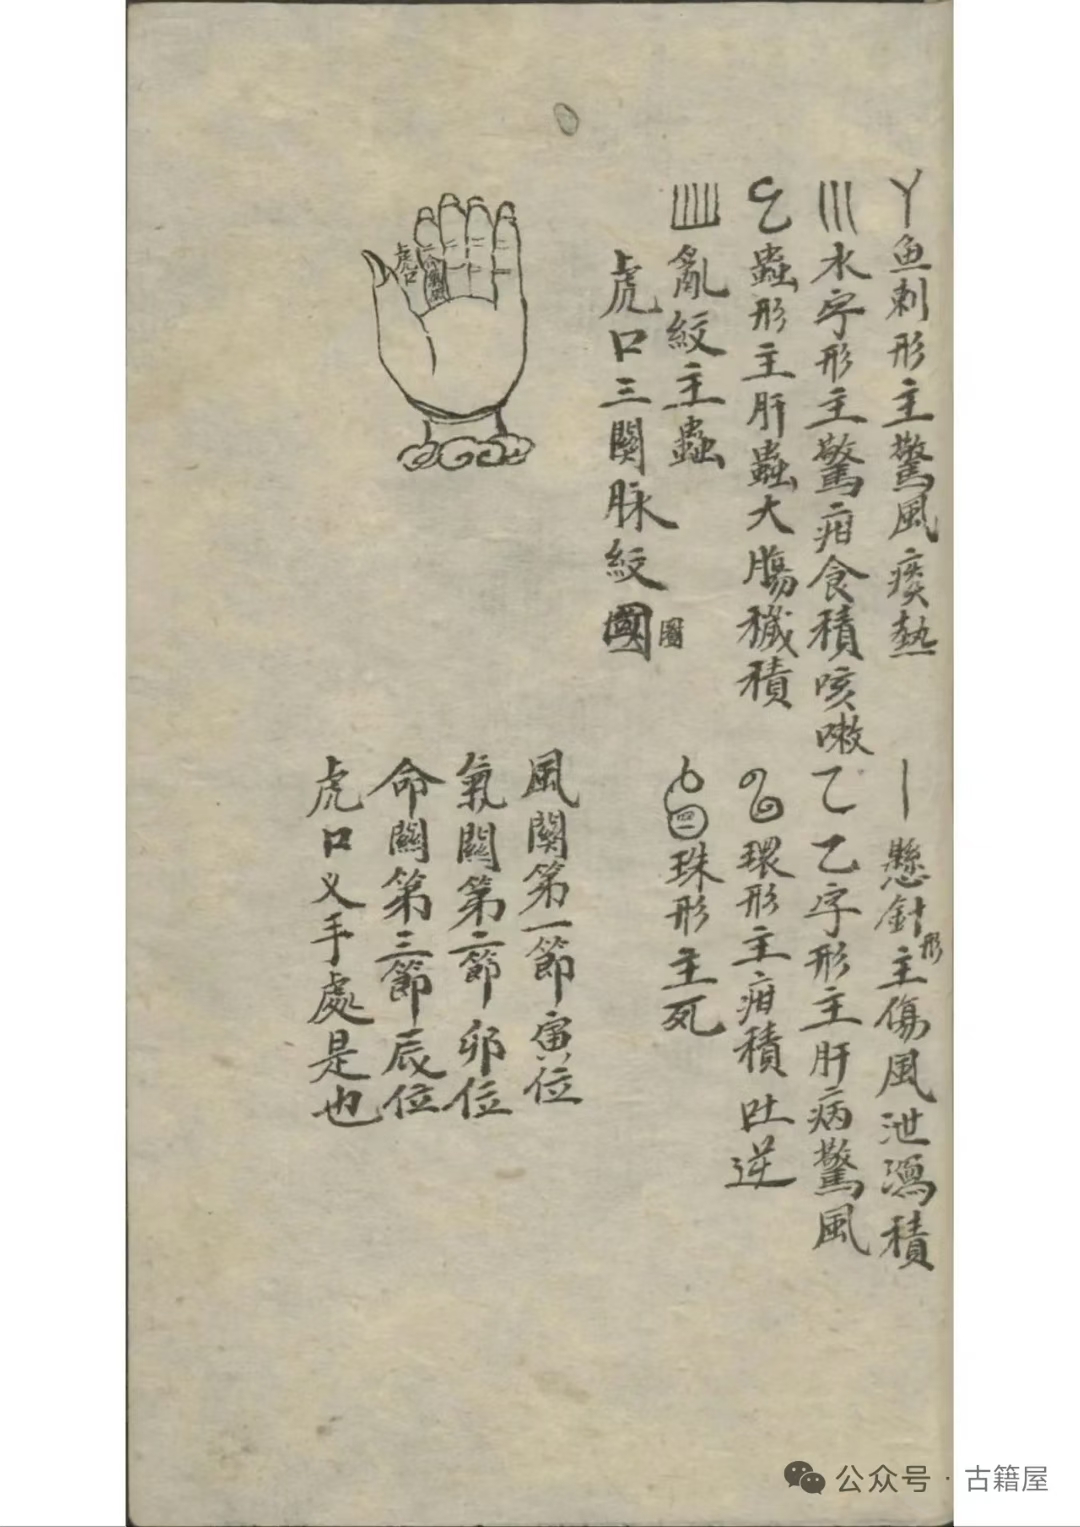 魚刺形主驚風痰熱
懸針形主傷風泄瀉積
水字形主驚疳食積咳嗽
乙字形主肝病驚風
蟲形主肝蟲大腸穢積
環形主疳積吐逆
亂紋主蟲
珠形主死
虎口三關脉紋國圖
風關第一節寅位
氣關第二節卯位
命關第三節辰位
虎口乂手處是也
虎口
命氣風
公众号·古籍屋